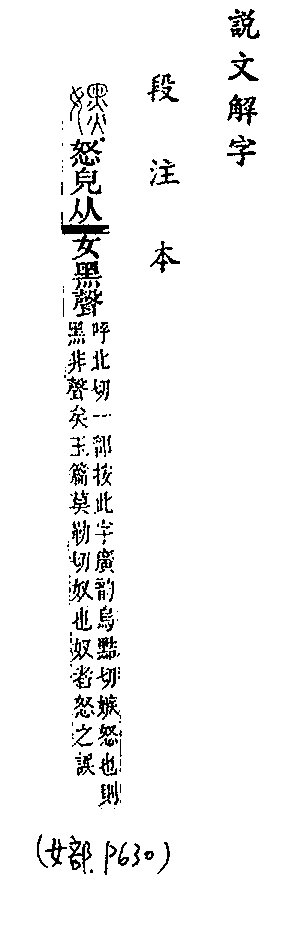 說文解字
段注本
嫼怒皃从女黑聲
呼北切一部按此字廣韵烏黠切嫉怒也則
黑非聲矣玉篇莫勒切奴也奴者怒之誤
(女部.P630)